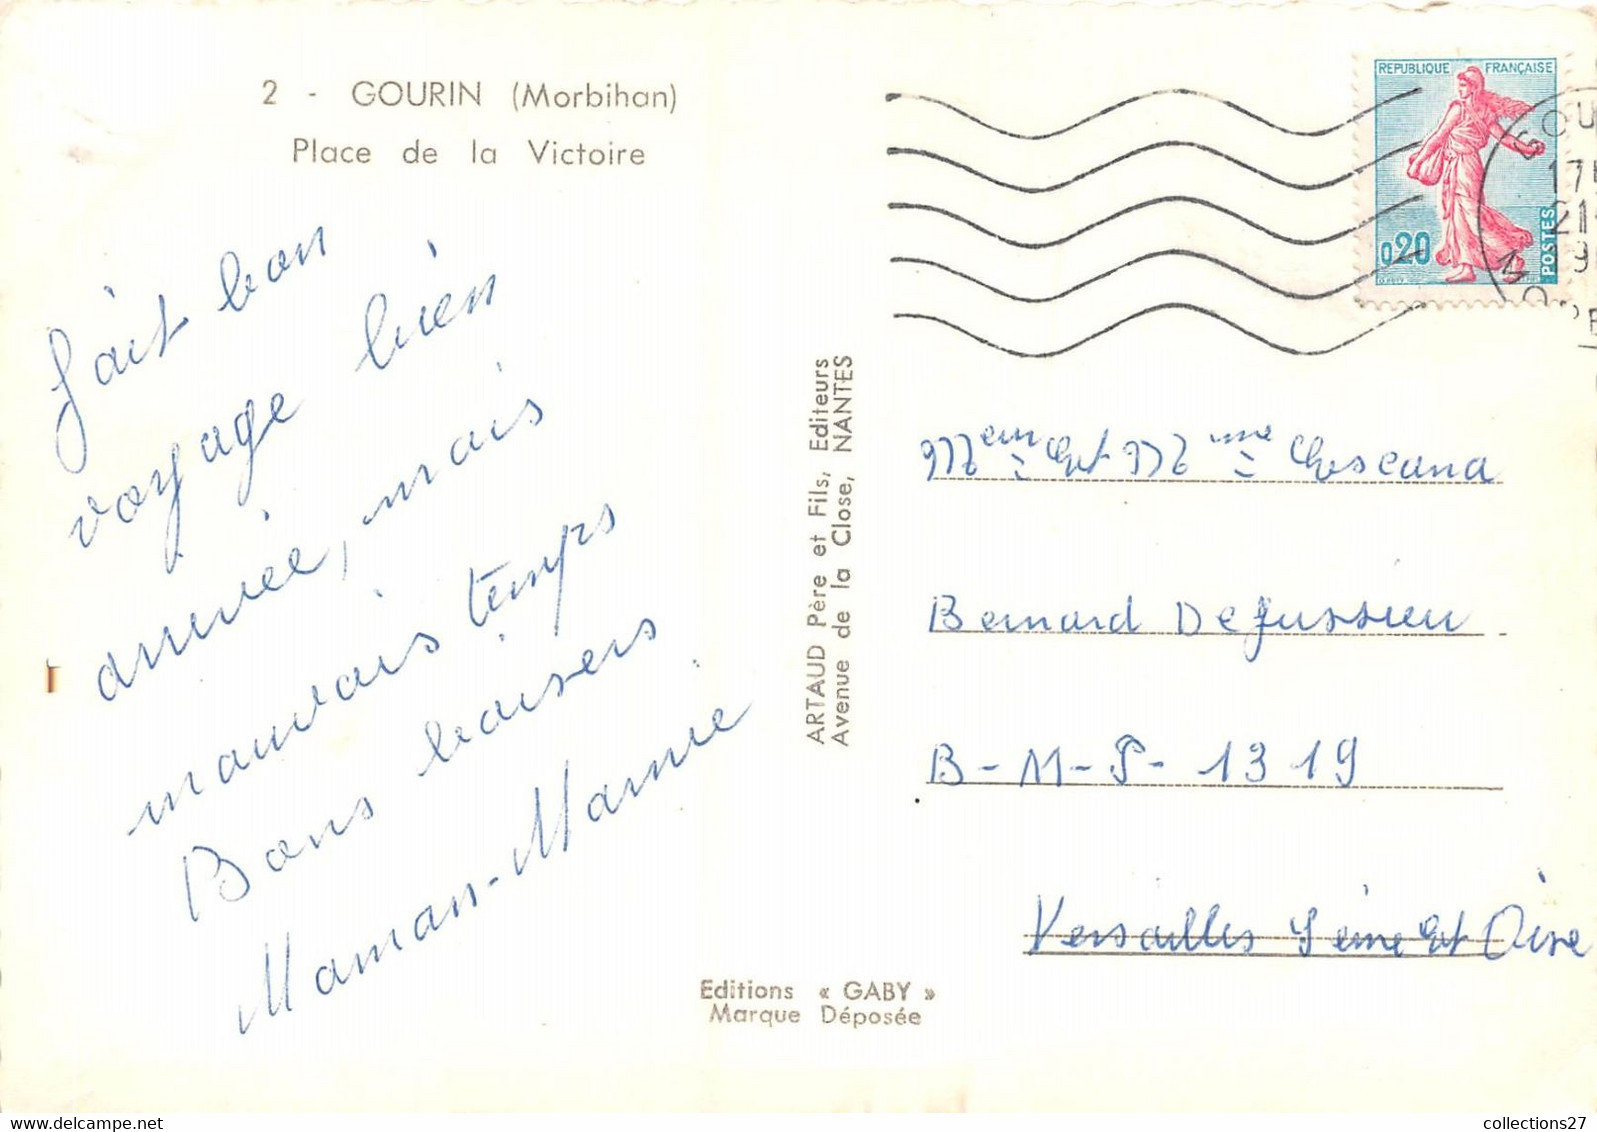 2 - GOURIN (Morbihan)
Place de la Victoire
fait bon
voyage bien
arrivée, mais
mauvais temps
Bons baisers
Maman-Mamie
ARTAUD Père et Fils, Editeurs
Avenue de la Close, NANTES
Editions « GABY »
Marque Déposée
REPUBLIQUE FRANÇAISE
0,20
POSTES
GOU
17H
21
19
MORB
et Mme
Bernard Dejussieu
B-M-P- 1319
Versailles Seine et Oise
collections27